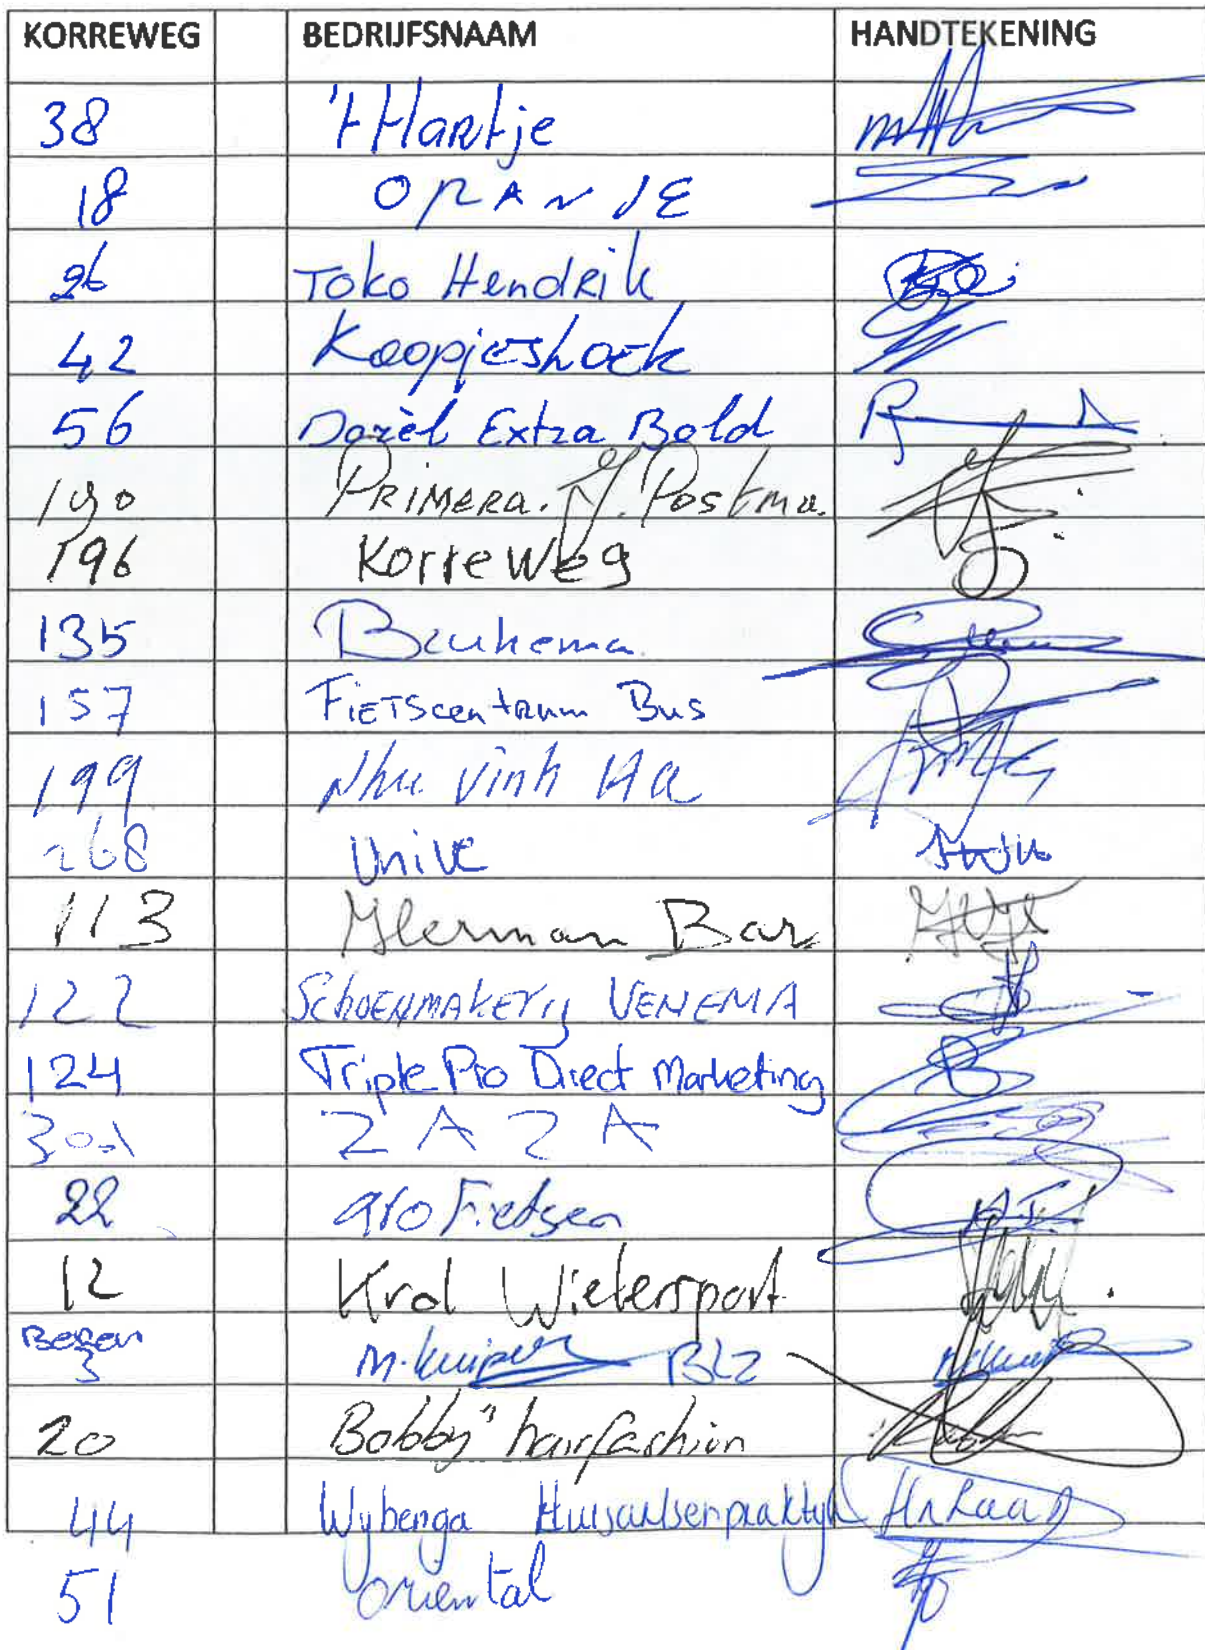 KORREWEG BEDRIJFSNAAM HANDTEKENING
38 't Hartje
18 ORANJE
26 Toko Hendrik
42 Koopjeshoek
56 Dozèl Extra Bold
190 PRIMERA. J. Postma.
196 Korreweg
135 Beukema
157 FIETScentrum Bus
199 Nhu Vinh Ha
268 Unive
113 Herman Bar
122 SCHOENMAKERIJ VENEMA
124 Triple Pro Direct Marketing
301 ZAZA
22 Gro Fietsen
12 Krol Wielersport
3 M. Kuiper BLZ
20 Bobby" hairfashion
44 Wybenga Huisartsenpraktijk
51 Oriental